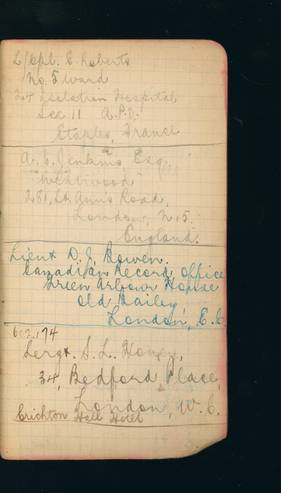 L/Cpl. E. Roberts
No. 5 Ward
No 4 Isolation Hospital
Sec 11 A.P.O.
Etaples, France
A. E. Jenkins Esq.
"Wealwood"
281, St. Anns Road,
London, N. 15.
England.
Lieut D. J. Bowen.
Canadian Record Office
Green Arbour House
Old Bailey,
London, E.C.
602,174
Sergt. S. L. Honey,
34, Bedford Place,
London, W.C.
Crichton Hall Hotel